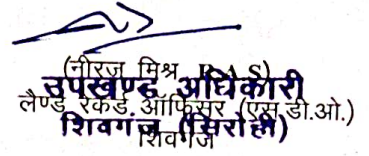 (नीरज मिश्र R.A.S)
उपखण्ड अधिकारी
लैण्ड रेकर्ड ऑफिसर (एस.डी.ओ.)
शिवगंज (सिरोही)
शिवगंज